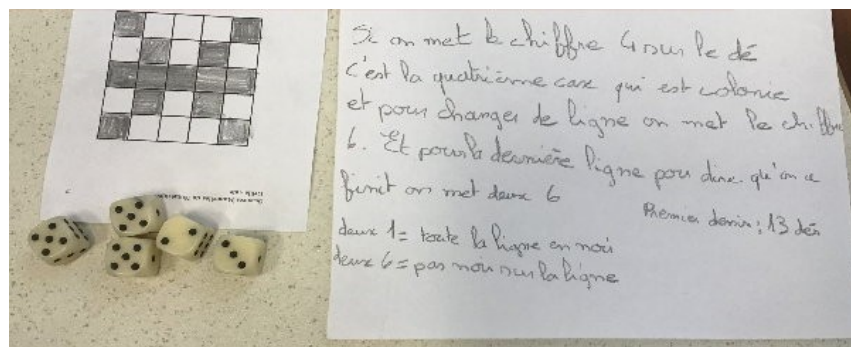 Si on met le chiffre 4 sur le dé
c'est la quatrième case qui est colorié
et pour changer de ligne on met le chiffre
6. Et pour la dernière ligne pour dire qu'on a
finit on met deux 6
Premier dessin : 13 dés
deux 1 = toute la ligne en noir
deux 6 = pas noir sur la ligne